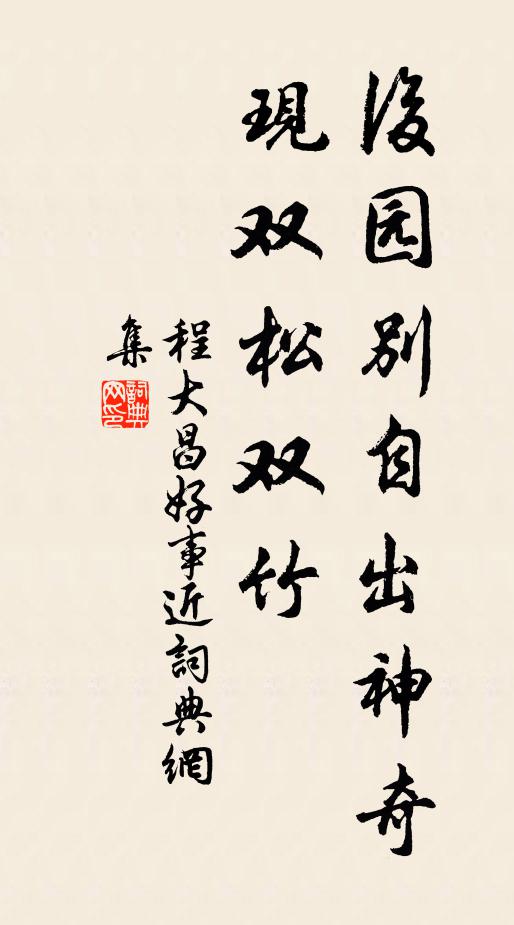 後园别自出神奇
現双松双竹
程大昌好事近詞典網
集
詞典
网印